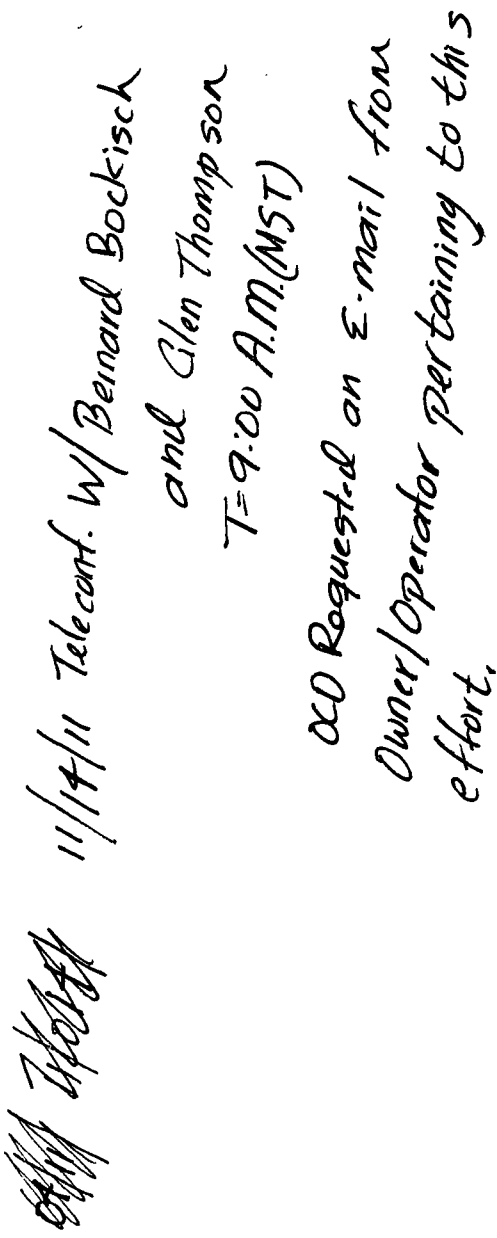 11/14/11 Teleconf. W/ Bernard Bockisch
and Glen Thompson
T=9:00 A.M.(MST)
OCD Requested an E-mail from
Owner/Operator pertaining to this
effort.